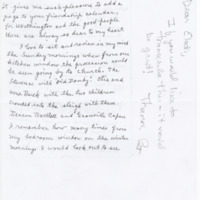 It gives me such pleasure to add a
page to your friendship calendar,
for Worthington and the good people
there are always so dear to my heart
I love to sit and review in my mind
the Sunday mornings when from our
kitchen window the procession could
be seen going by to Church. The
Stevens with "Old Dandy" this and
one Buck with the two children
crowded into the sleigh with them.
Deacon Bartlett and Granville Capen
I remember how many times from
my bedroom window on the winter
mornings I would look out to see
Dear Chas,
If you would like to
translate them it would
be great!